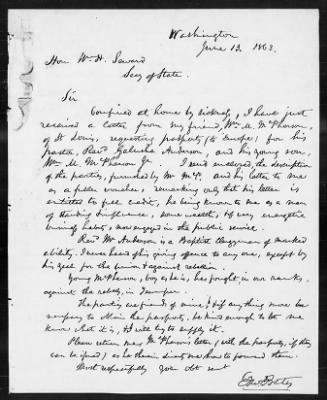 Washington
June 13, 1863.
Hon Wm H. Seward
Secy of State.
Sir
Confined at home by sickness, I have just
received a letter from my friend, Wm M. McPherson,
of St Louis, requesting passport (to Europe) for his
pastor, Revd Galusha Anderson, and his young son,
Wm. M. McPherson Jr. I send enclosed, the description
of the parties, furnished by Mr McP. and his letter to me
as a fuller voucher, remarking only that his letter is
entitled to full credit, he being known to me as a man
of standing & influence, some wealth, & of very energetic
business habits, now engaged in the public service.
Revd Mr Anderson is a Baptist Clergyman of marked
ability. I never heard of his giving offence to any one, except by
his zeal for the union & against rebellion.
Young McPherson, boy as he is, has fought in our ranks,
against the rebels, in
The parties are friends of mine; & if any thing more be
necessary to obtain the passports, be kind enough to let me
know what it is, & I will try to supply it.
Please return me McPherson's letter (with the passports, if they
can be issued) as he therein directs me how to forward them.
Most respectfully your obt svt
Edw Bates